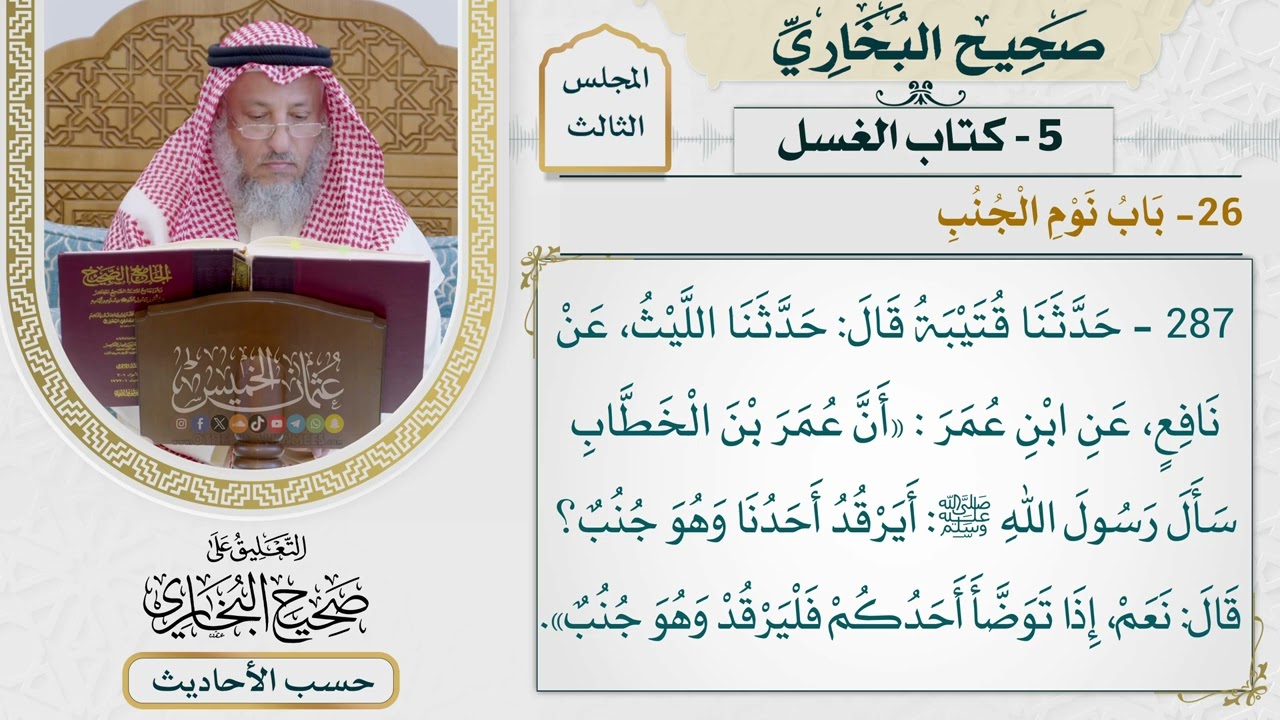 صَحِيح البُخَارِيِّ
5 - كتاب الغسل
المجلس
الثالث
26- بَابُ نَوْمِ الْجُنُبِ
287 - حَدَّثَنَا قُتَيْبَةُ قَالَ: حَدَّثَنَا اللَّيْثُ، عَنْ
نَافِعٍ، عَنِ ابْنِ عُمَرَ : «أَنَّ عُمَرَ بْنَ الْخَطَّابِ
سَأَلَ رَسُولَ اللهِ ﷺ: أَيَرْقُدُ أَحَدُنَا وَهُوَ جُنُبٌ؟
قَالَ: نَعَمْ، إِذَا تَوَضَّأَ أَحَدُكُمْ فَلْيَرْقُدْ وَهُوَ جُنُبٌ».
الجامع الصحيح
عثمان الخميس
التَّعْلِيقُ عَلَى
صَحِيحُ البُخَارِي
حسب الأحاديث